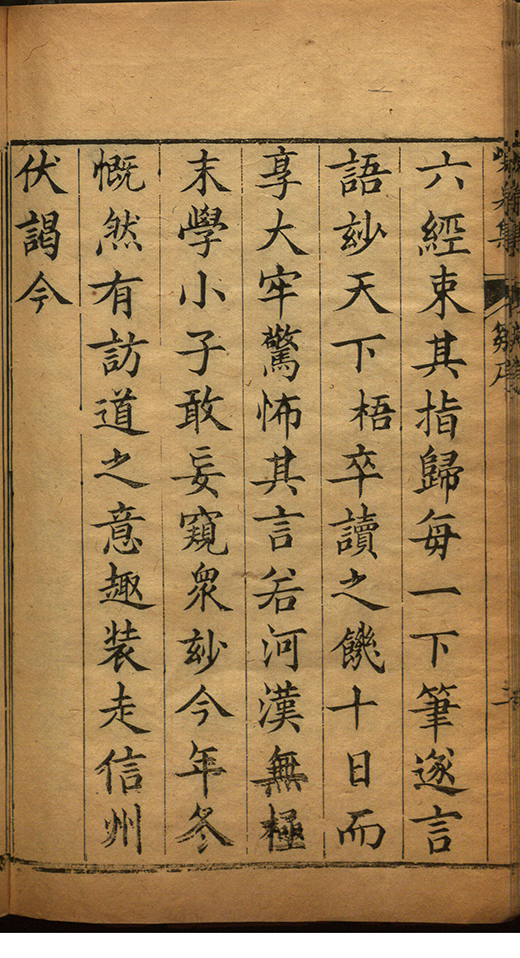 六經束其指歸每一下筆遂言
語玅天下梧卒讀之饑十日而
享大牢驚怖其言若河漢無極
末學小子敢妄窺衆玅今年冬
慨然有訪道之意趣装走信州
伏謁今